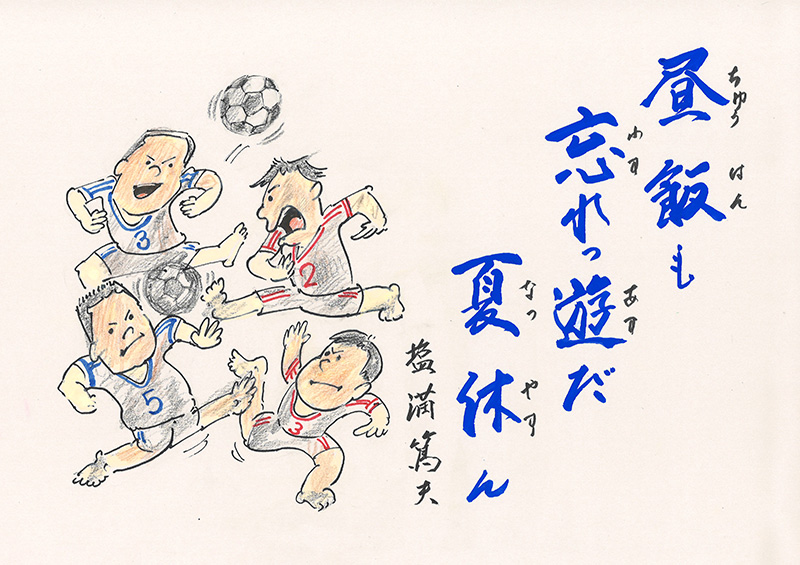 昼飯も
ちゅう はん
忘れっ遊だ
あす
夏休ん
なつ やす
塩満篤夫
3
2
5
3